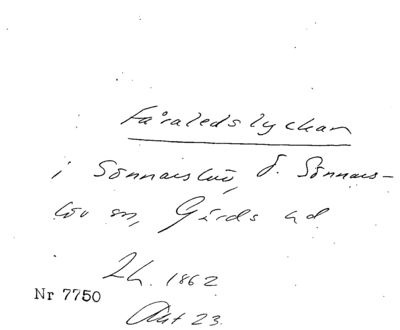 Fåraledslyckan
i Sönnarslöv, Ö. Sönnars-
löv sn, Gärds hd
Lh. 1862
Nr 7750
Akt 23.